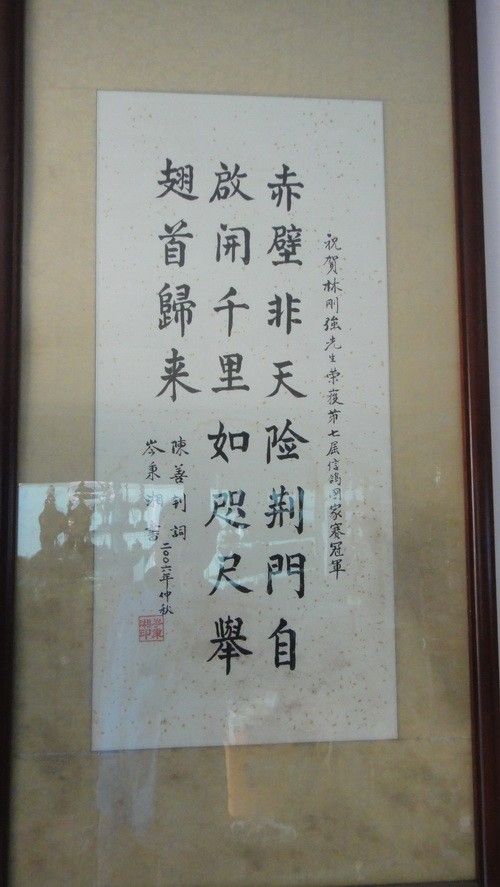 祝賀林刚強先生荣獲第七届信鴿國家賽冠軍
赤壁非天险荆門自
啟開千里如咫尺舉
翅首歸来
陳善刊詞
岑秉湖書
二〇〇六年仲秋